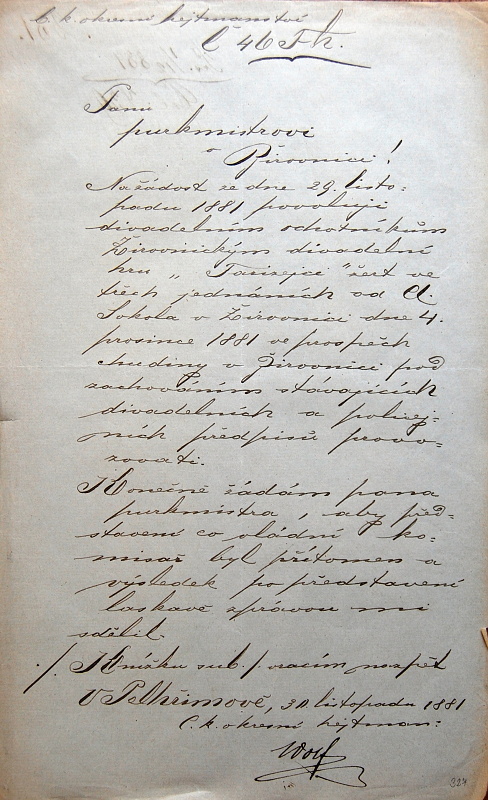 C. k. okresní hejtmanství
Č 46 Th.
Panu
purkmistrovi
v Žirovnici!
Na žádost ze dne 29. listo-
padu 1881 povoluji
divadelním ochotníkům
Žirovnickým divadelní
hru „ Paězejci " žert ve
třech jednáních od A.
Sokola v Žirovnici dne 4.
prosince 1881 ve prospěch
chudiny v Žirovnici pod
zachováním stávajících
divadelních a policej-
ních předpisů provo-
zovati.
Konečně žádám pana
purkmistra, aby před-
stavení co vládní ko-
misař byl přítomen a
výsledek po představení
laskavě zprávou mi
sdělil.
./. Knížku sub ./. vracím nazpět
V Pelhřimově, 30 listopadu 1881
C. k. okresní hejtman:
Wolf
327